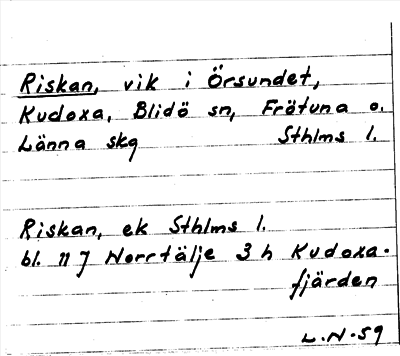 Riskan, vik i Örsundet,
Kudoxa, Blidö sn, Frötuna o.
Länna skg Sthlms l.
Riskan, ek Sthlms l.
bl. 11 J Norrtälje 3 h Kudoxa-
fjärden
L.N-59